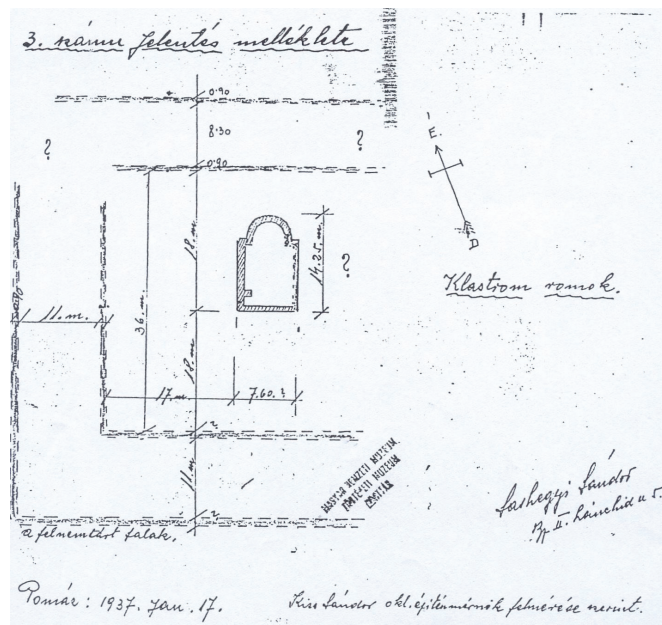 3. számu Jelentés melléklete
0.90
8.30
0.90
?
?
É.
D
18.m.
14.25.m.
?
Klastrom romok.
11.m.
36.m.
18.m.
17.m.
7.60.?
11.m.
?
?
MAGYAR NEMZETI MUZEUM
TÖRTÉNETI MUZEUM
Sashegyi Sándor
Bp. II. Lánchid u 5.
a felnemtárt falak.
Pomáz: 1937. Jan. 17.
Kiss Sándor okl. építésmérnök felmérése szerint.